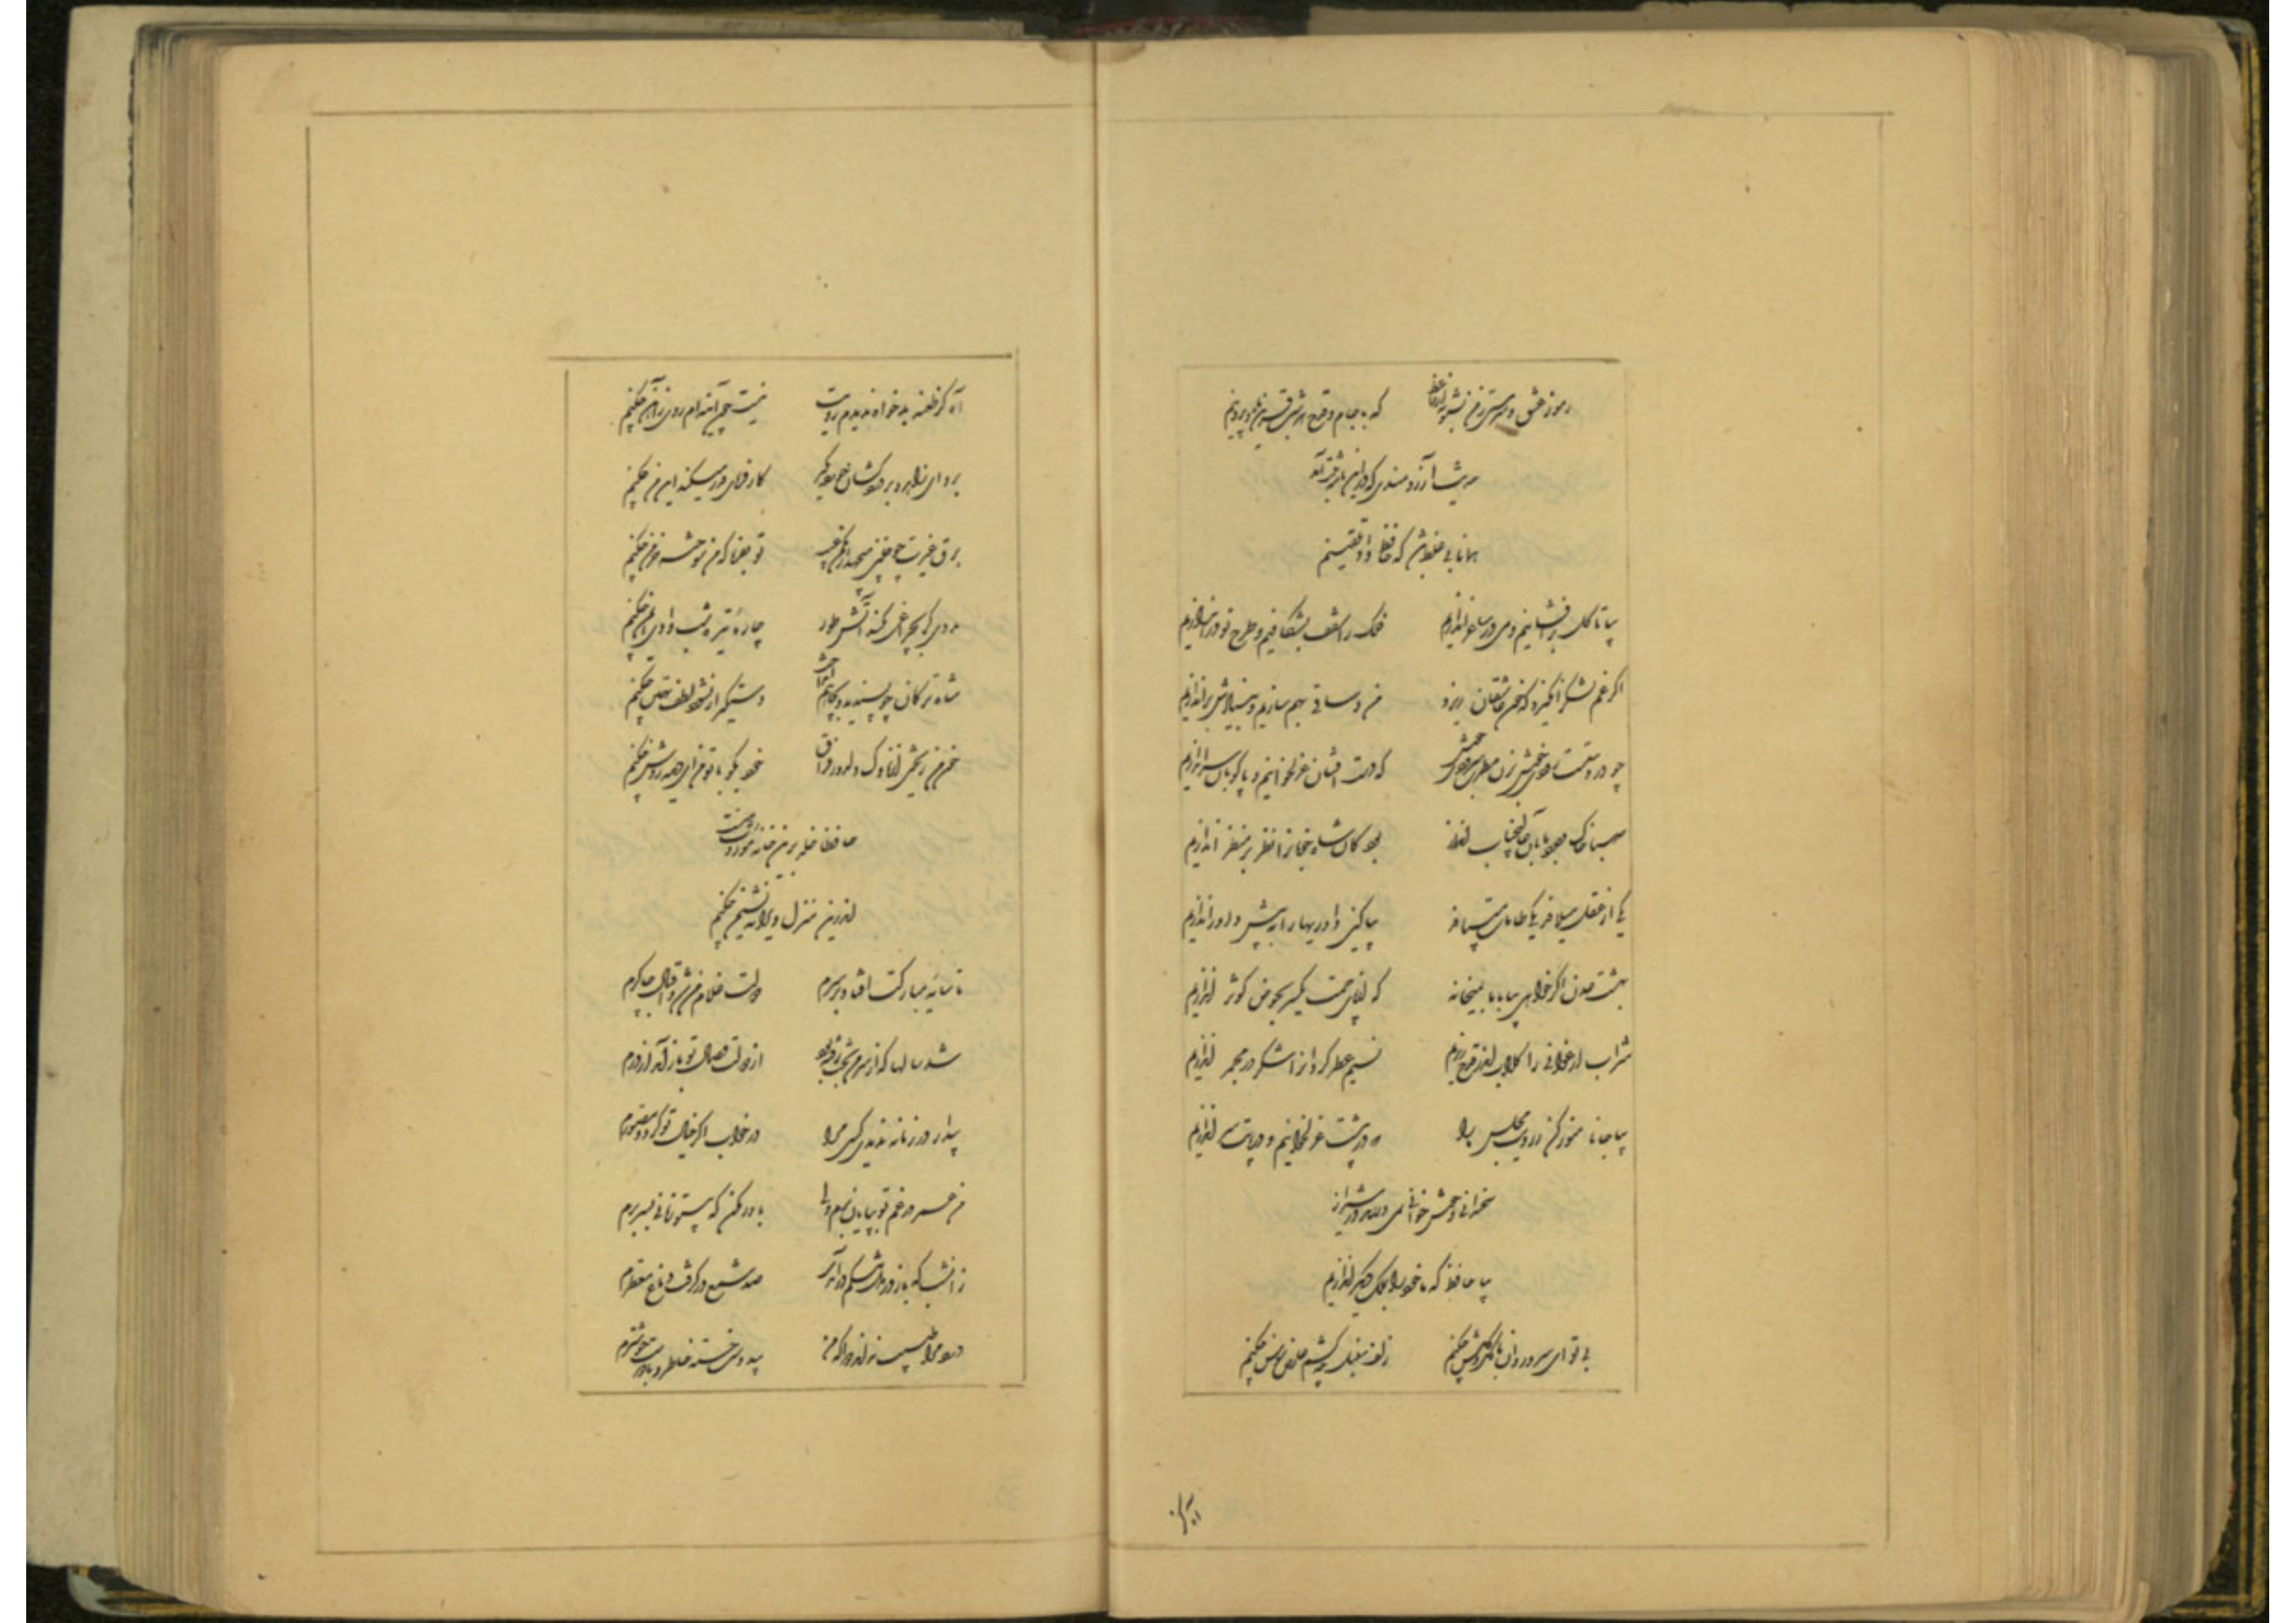 رموز عشق و سرمستی ز من بشنو نه از حافظ که با جام و قدح هر شب قرین ماه و پروینم
حدیث آرزومندی که در این نامه ثبت آمد
همانا بی غلط باشد که حافظ داد تلقینم
بیا تا گل برافشانیم و می در ساغر اندازیم فلک را سقف بشکافیم و طرح نو دراندازیم
اگر غم لشکر انگیزد که خون عاشقان ریزد من و ساقی بهم سازیم و بنیادش براندازیم
چو در دستست رودی خوش بزن مطرب سرودی خوش که دست افشان غزل خوانیم و پاکوبان سر اندازیم
صبا خاک وجود ما بدان عالیجناب انداز بود کان شاه خوبان را نظر بر منظر اندازیم
یکی از عقل میلافد یکی طامات میبافد بیا کین داوریها را به پیش داور اندازیم
بهشت عدن اگر خواهی بیا با ما بمیخانه که از پای خمت یکسر بحوض کوثر اندازیم
شراب ارغوانی را گلاب اندر قدح ریزیم نسیم عطر گردان را شکر در مجمر اندازیم
بیا جانا منور کن ز رویت مجلس ما را که در پیشت غزل خوانیم و در پایت سر اندازیم
سخندانی و خوشخوانی نمی ورزند در شیراز
بیا حافظ که تا خود را بملک دیگر اندازیم
بی تو ای سرو روان با گل و گلشن چکنم زلف سنبل چه کشم عارض سوسن چکنم
آه کز طعنه بدخواه ندیدم رویت نیست چون آینه ام روی ز آهن چکنم
برو ای زاهد و بر دردکشان خرده مگیر کارفرمای قدر میکند این من چکنم
برق غیرت چو چنین میجهد از مکمن غیب تو بفرما که من سوخته خرمن چکنم
مددی گر بچراغی نکند آتش طور چاره تیره شب وادی ایمن چکنم
شاه ترکان چو پسندید و بچاهم انداخت دستگیر ار نشود لطف تهمتن چکنم
حافظا خلد برین خانه موروث منست
اندرین منزل ویرانه نشیمن چکنم
تا سایه مبارکت افتاد بر سرم دولت غلام من شد و اقبال چاکرم
شد سالها که از سر من بخت رفته بود از دولت وصال تو باز آمد از درم
بیدار در زمانه ندیدی کسی مرا در خواب اگر خیال تو گشتی مصورم
من عمر در غم تو بپایان برم ولی باور مکن که بی تو زمانی بسر برم
زان شب که باز در دل تنگم درآمدی صد شمع درگرفت دماغ معطرم
درد مرا طبیب نداند دوا که من بی دوست خسته خاطر و با درد خوشترم